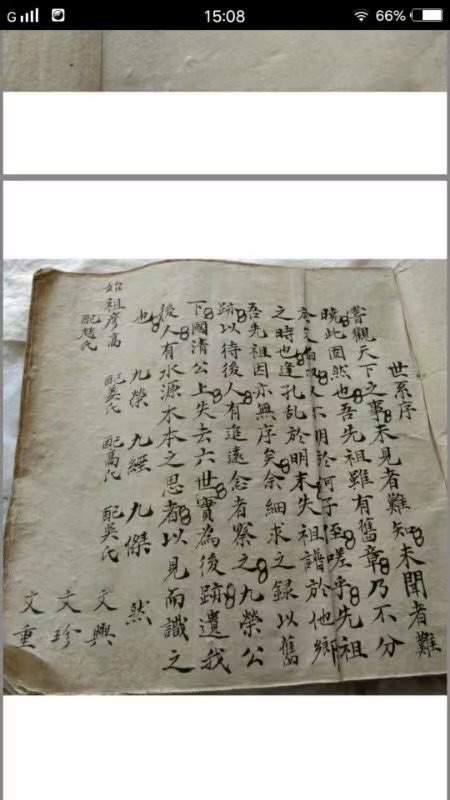 15:08
66%
世系序
嘗觀天下之事未見者難知未聞者難
曉此固然也吾先祖雖有舊章乃不分
不明於何子侄嗟乎先祖
之時也逢孔乱於明末失祖譜於他鄉
吾先祖因亦無序矣余細求之錄以舊
跡以待後人有追遠念者察之九榮公
下國清公上失去六世實為後跡遺我
後人有水源木本之思者以見而識之
也
始祖彥高
配趙氏
九榮
配吳氏
九經
配高氏
九傑
配吳氏
然
文興
文珍
文重